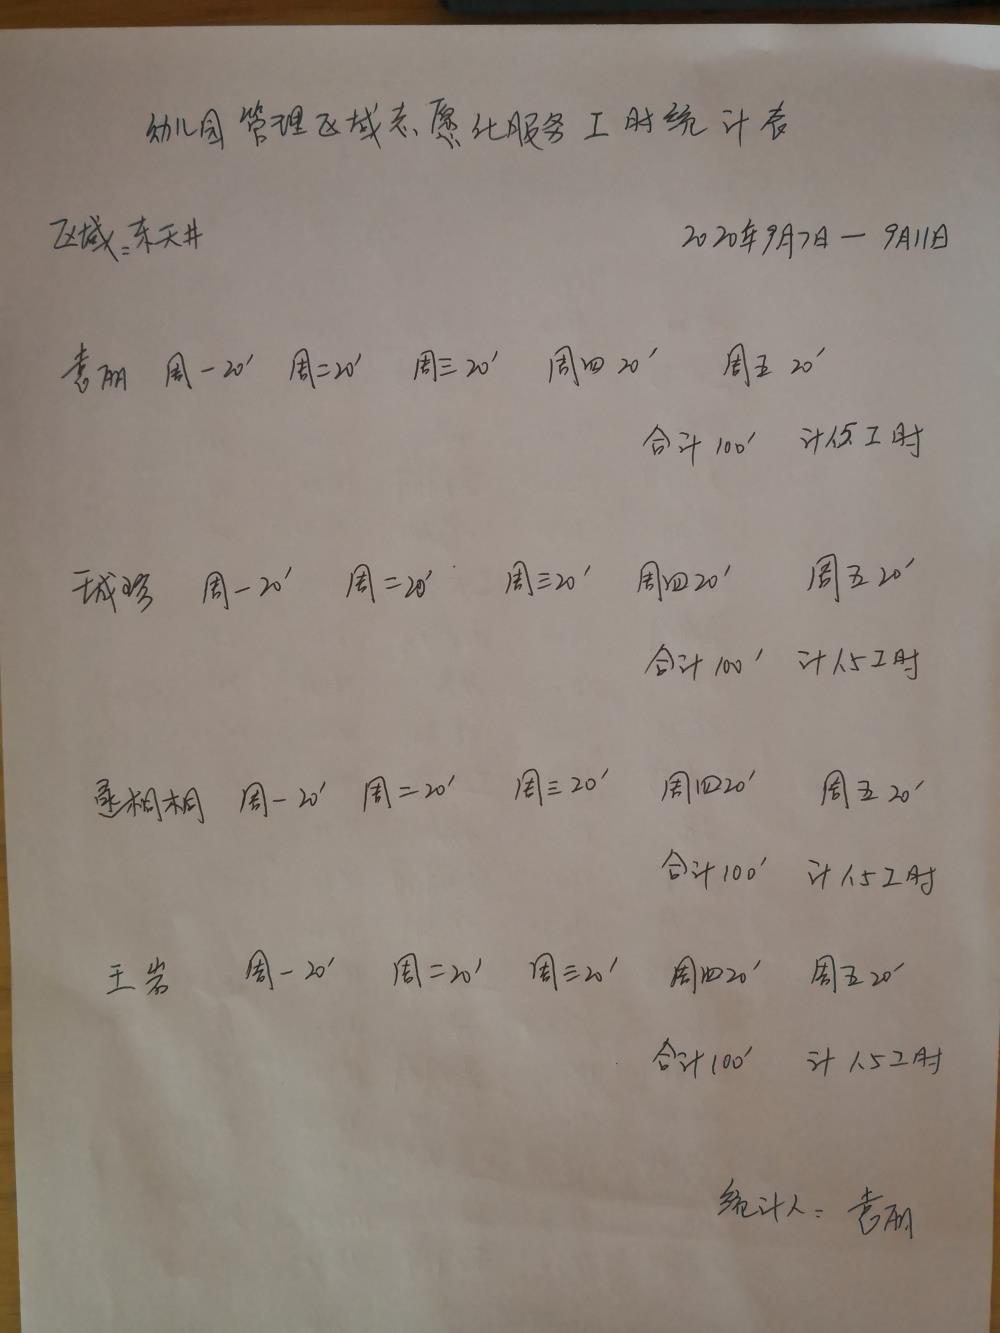 幼儿园管理区域志愿化服务工时统计表
区域:东天井 2020年9月7日—9月11日
袁丽 周一20′ 周二20′ 周三20′ 周四20′ 周五20′
合计100′ 计1.5工时
周一20′ 周二20′ 周三20′ 周四20′ 周五20′
合计100′ 计1.5工时
桐桐 周一20′ 周二20′ 周三20′ 周四20′ 周五20′
合计100′ 计1.5工时
王岩 周一20′ 周二20′ 周三20′ 周四20′ 周五20′
合计100′ 计1.5工时
统计人:袁丽